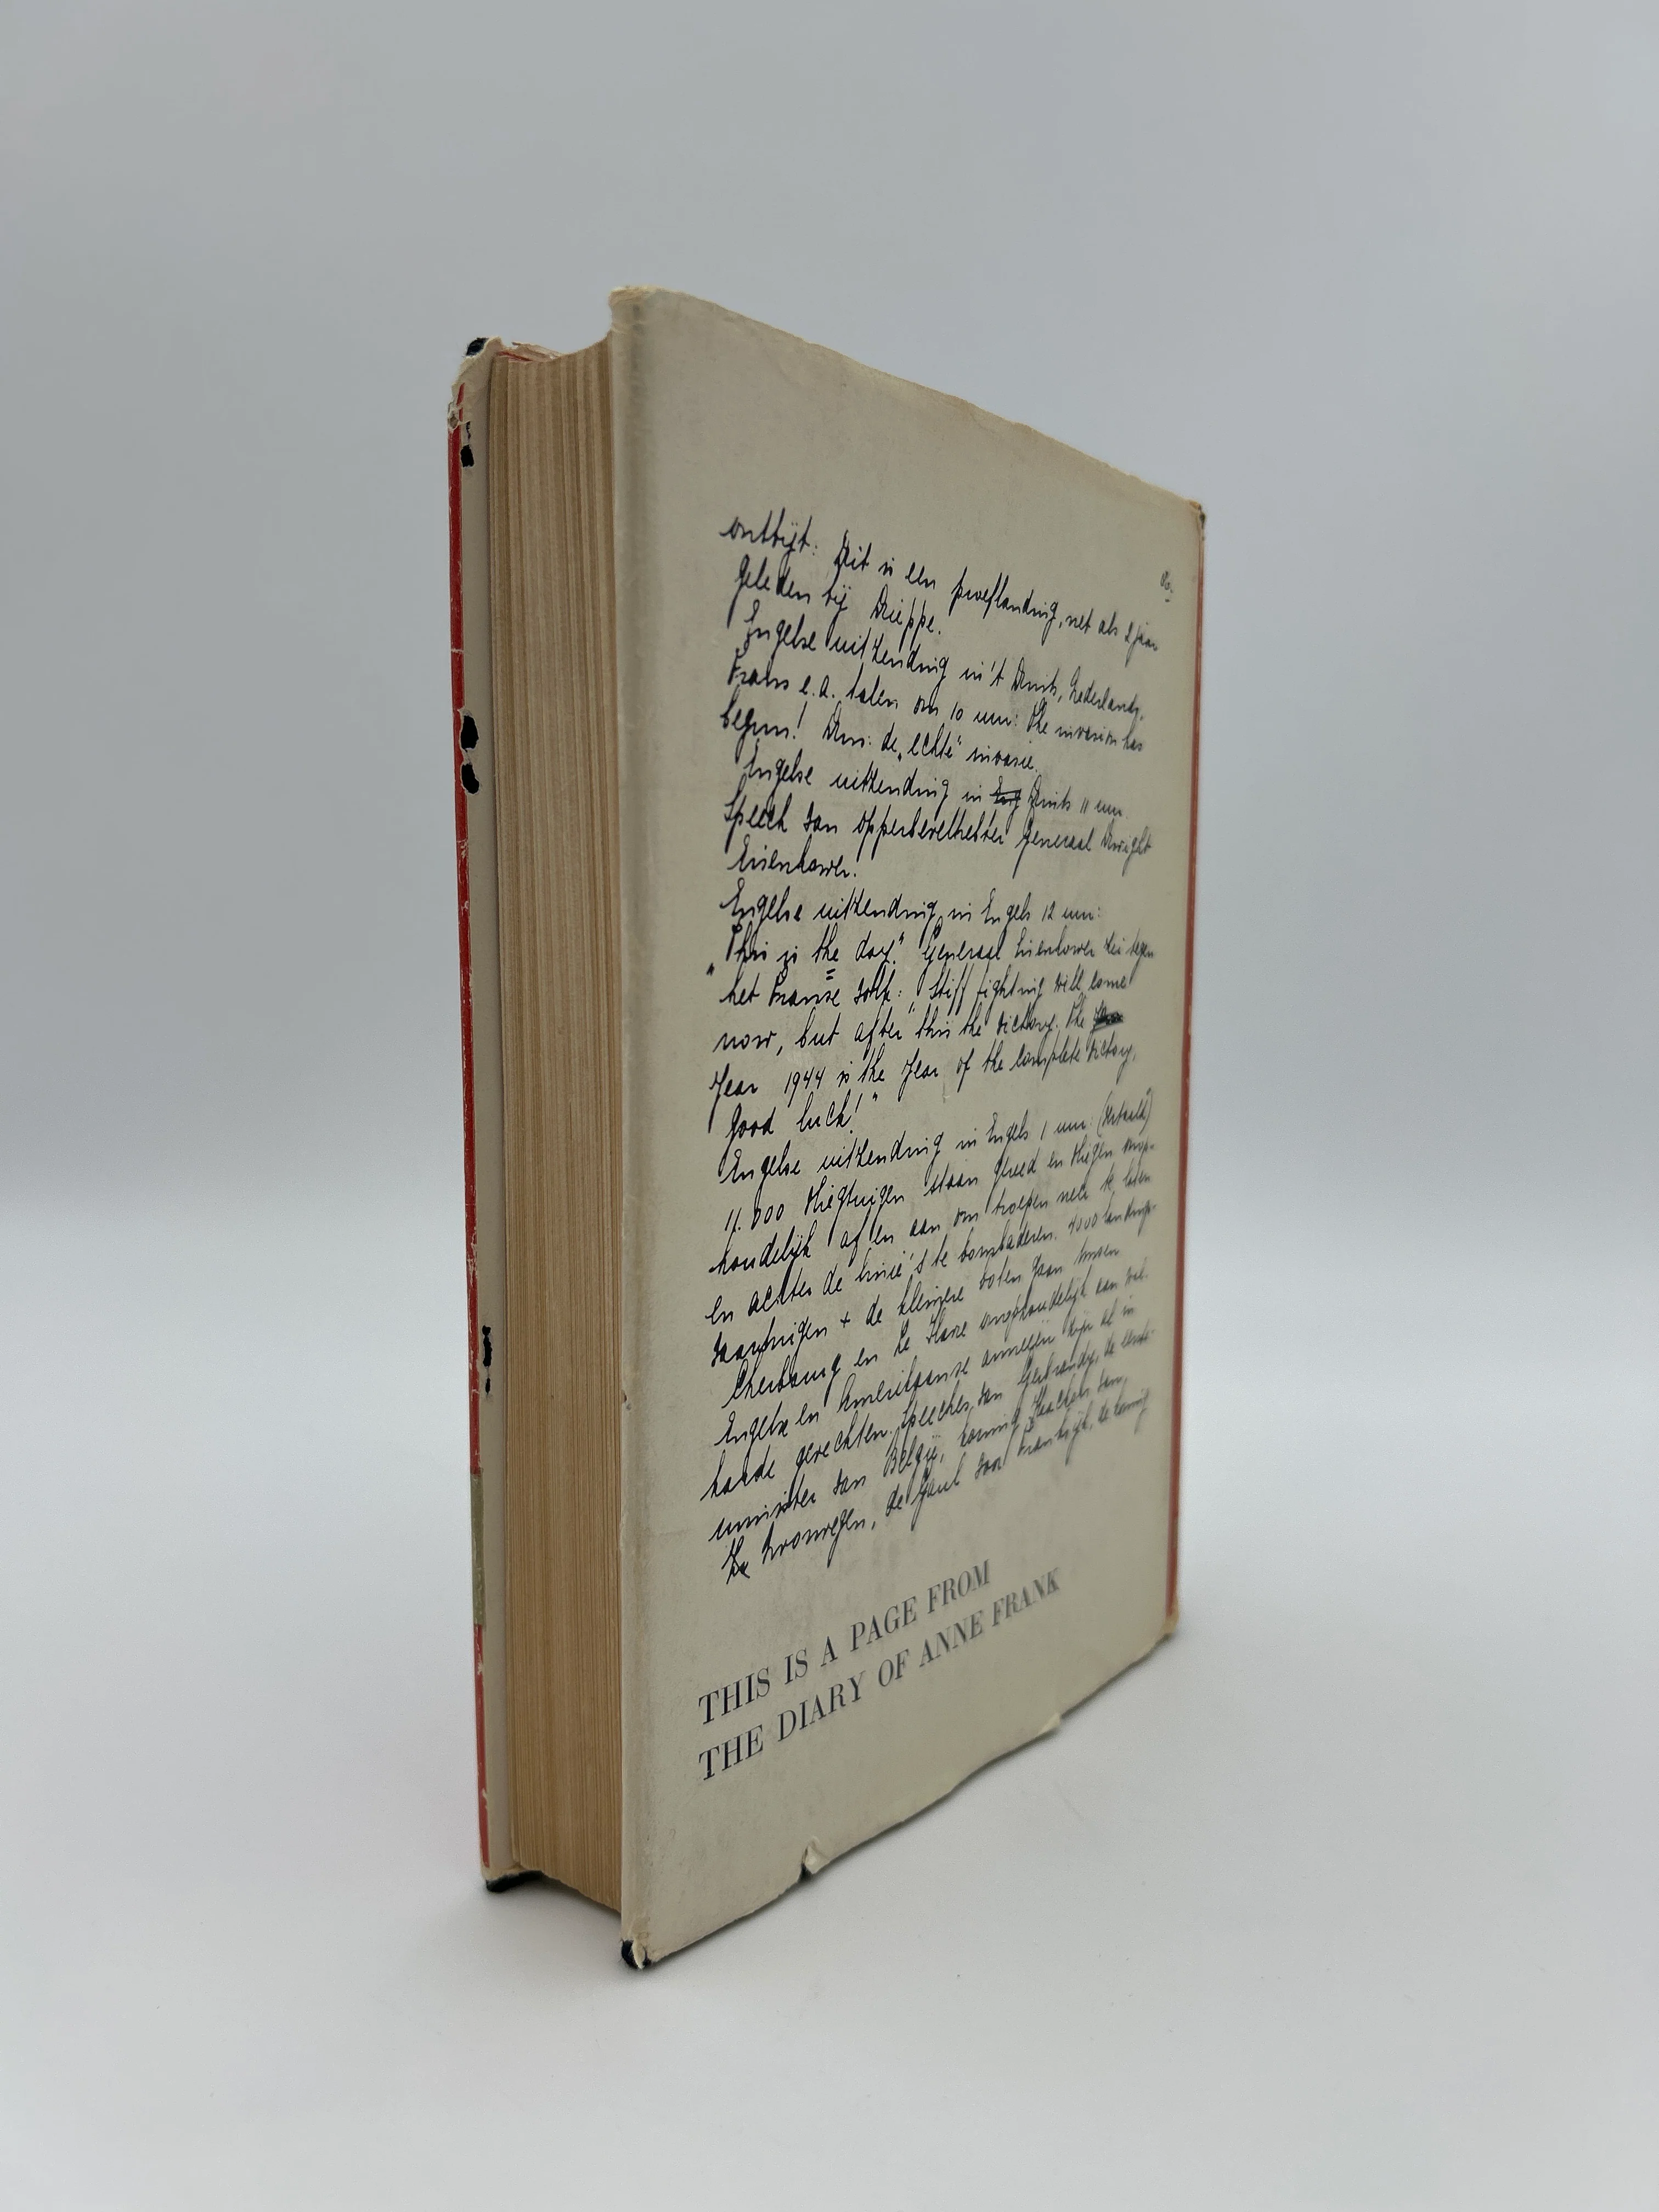 ontbijt: Dit is een proeflanding, net als 2 jaar
geleden bij Dieppe.
Engelse uitzending in 't Duits, Nederlands,
Frans e.a. talen om 10 uur: The invasion has
begun! Dus: de „echte" invasie.
Engelse uitzending in Eng Duits 11 uur
Speech van opperbevelhebber Generaal Dwight
Eisenhower.
Engelse uitzending in Engels 12 uur:
„This is the day." Generaal Eisenhower zei tegen
het Franse volk: „Stiff fighting will come
now, but after this the victory. The
Year 1944 is the Year of the complete victory,
Good luck!"
Engelse uitzending in Engels 1 uur:
11.000 vliegtuigen staan gereed en vliegen onop-
houdelijk af en aan om troepen neer te laten
en achter de linie's te bombaderen. 4000 landings-
vaartuigen + de kleinere boten gaan tussen
Cherbourg en Le Havre onophoudelijk aan wal.
Engelse en Amerikaanse armeeën zijn al in
harde gevechten. Speeches van Gerbrandy, de eerste-
minister van België, koning Haakon van,
Noorwegen, de Gaul voor Frankrijk, de koning
THIS IS A PAGE FROM
THE DIARY OF ANNE FRANK